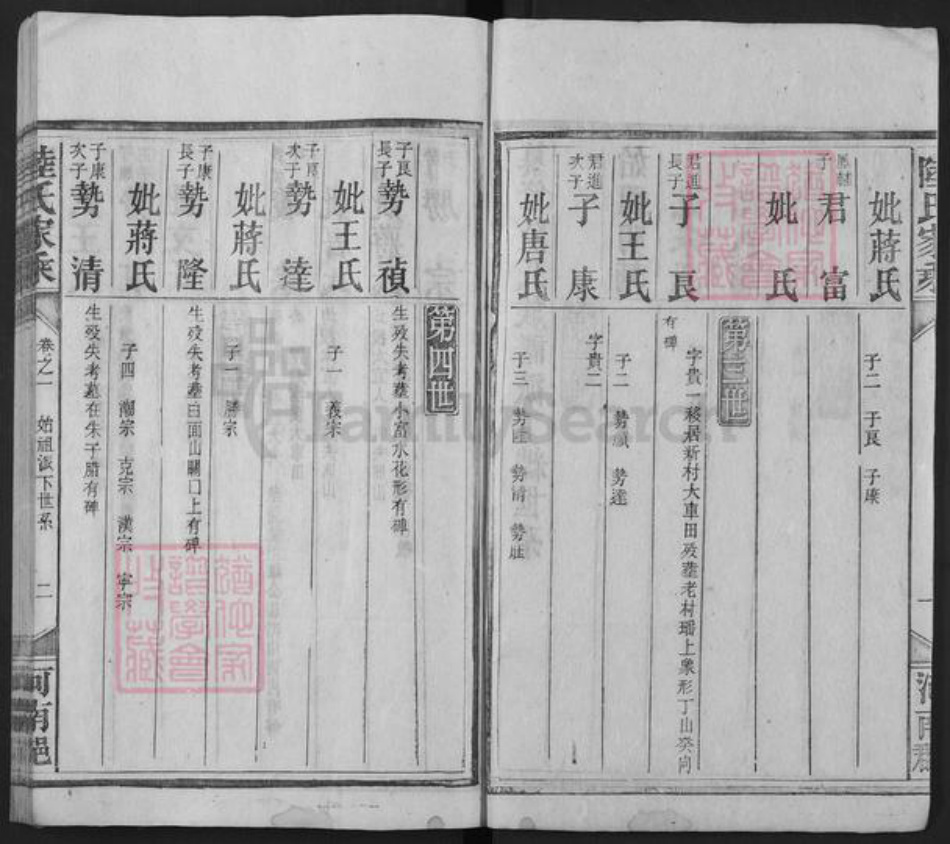 妣蔣氏
子二 子良 子康
君富
妣 氏
第三世
君進長子 子良
字貴一移居新村大車田歿塟老村璠上象形丁山癸向
有碑
妣王氏
子二 勢禎 勢達
君進次子 子康
字貴二
妣唐氏
子三 勢隆 勢清 勢壯
第四世
子良長子 勢禎
生歿失考塟小富水花形有碑
妣王氏
子一 義宗
子良次子 勢達
妣蔣氏
子一 勝宗
子康長子 勢隆
生歿失考塟白面山關口上有碑
妣蔣氏
子四 潮宗 克宗 漢宗 寧宗
子康次子 勢清
生歿失考墓在朱子腊有碑
陸氏家乘
卷之一 始祖派下世系 二
河南邑